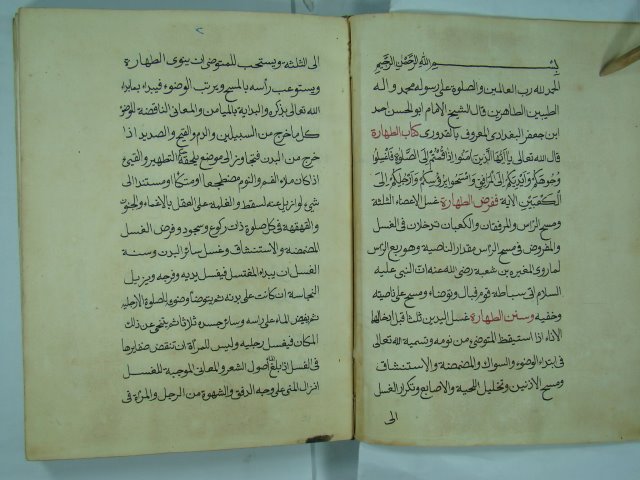 بسم الله الرحمن الرحيم
الحمد لله رب العالمين والصلوة على رسوله محمد واله
الطيبين الطاهرين قال الشيخ الامام ابو الحسن احمد
ابن جعفر البغدادى المعروف بالقدورى كتاب الطهارة
قال الله تعالى يا ايها الذين امنوا اذا قمتم الى الصلوة فاغسلوا
وجوهكم وايديكم الى المرافق وامسحوا برؤسكم وارجلكم الى
الكعبين الآية ففرض الطهارة غسل الاعضاء الثلثة
ومسح الراس والمرفقان والكعبان تدخلان فى الغسل
والمفروض فى مسح الراس مقدار الناصية وهو ربع الراس
لما روى المغيره بن شعبة رضى الله عنه ان النبى عليه
السلام اتى سباطة قوم فبال وتوضاء ومسح على ناصيته
وخفيه وسنن الطهارة غسل اليدين ثلثا قبل ادخالها
الاناء اذا استيقظ المتوضئ من نومه وتسمية الله تعالى
فى ابتداء الوضوء والسواك والمضمضة والاستنشاق
ومسح الاذنين وتخليل اللحية والاصابع وتكرار الغسل
الى
٢
الى الثلثة ويستحب للمتوضى ان ينوى الطهارة
ويستوعب رأسه بالمسح ويرتب الوضوء فيبداء بما بداء
الله تعالى بذكره والبداية بالميامن والمعانى الناقضة للوضوء
كل ما خرج من السبيلين والدم والقيح والصديد اذا
خرج من البدن فتجاوز الى موضع يلحقه حكم التطهير والقيء
اذا كان ملاء الفم والنوم مضطجعا او متكئا او مستندا الى
شىء لو ازيل عنه لسقط والغلبة على العقل بالاغماء والجنون
والقهقهة فى كل صلوة ذات ركوع وسجود وفرض الغسل
المضمضة والاستنشاق وغسل سائر البدن وسنة
الغسل ان يبداء المغتسل فيغسل يديه وفرجه ويزيل
النجاسة ان كانت على بدنه ثم يتوضاء وضوءه للصلوة الا رجليه
ثم يفيض الماء على راسه وسائر جسده ثلاثا ثم يتنحى عن ذلك
المكان فيغسل رجليه وليس للمرأة ان تنقض ضفايرها
فى الغسل اذ بلغ الماء اصول الشعر والمعانى الموجبة للغسل
انزال المنى على وجه الدفق والشهوة من الرجل والمرأة فى